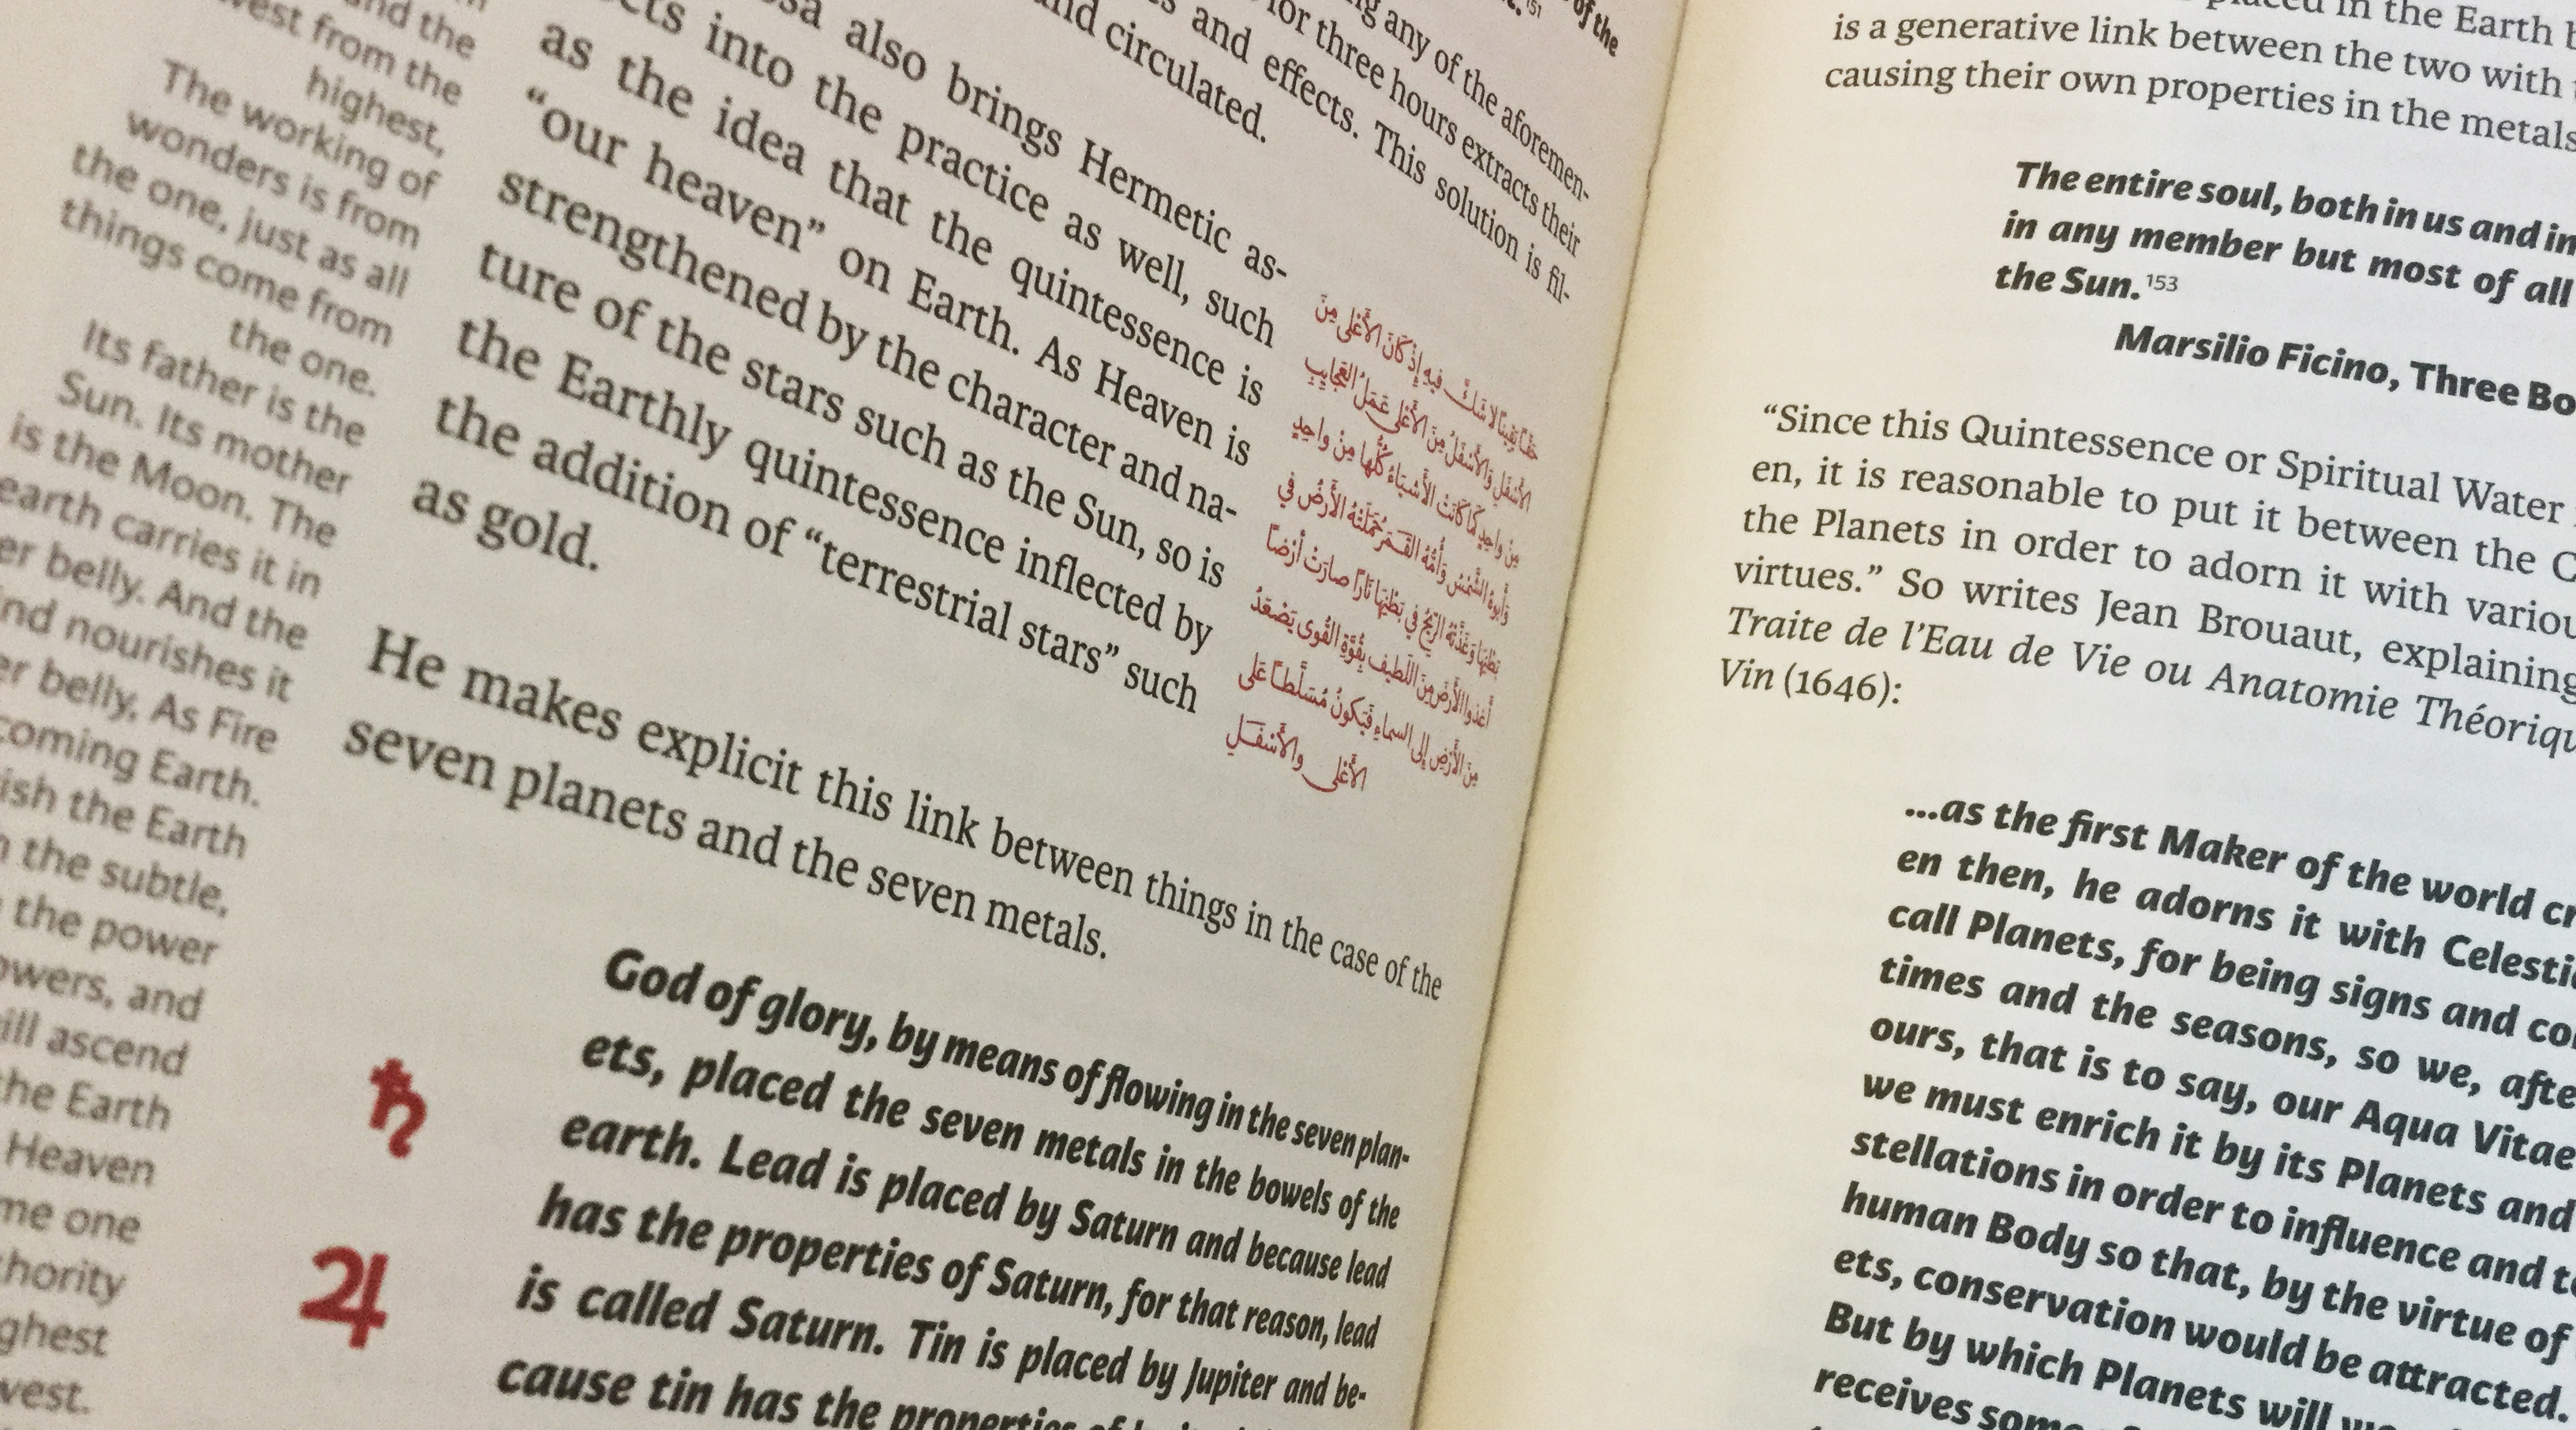 and the
west from the
highest,
The working of
wonders is from
the one, just as all
things come from
the one.
Its father is the
Sun. Its mother
is the Moon. The
earth carries it in
belly. And the
nourishes it
belly, As Fire
Earth.
the Earth
the subtle,
the power
and
ascend
the Earth
Heaven
one
of the
151
any of the aforemen-
for three hours extracts their
and effects. This solution is fil-
and circulated.
also brings Hermetic as-
into the practice as well, such
as the idea that the quintessence is
“our heaven” on Earth. As Heaven is
strengthened by the character and na-
ture of the stars such as the Sun, so is
the Earthly quintessence inflected by
the addition of “terrestrial stars” such
as gold.
حقًا يَقِينًا لا شَكَّ فيهِ إِذْ كَانَ الأَعْلَى مِنَ
الأَسْفَلِ وَالأَسْفَلُ مِنَ الأَعْلَى عَمَلُ العَجَايِبِ
مِنْ واحِدٍ كَمَا كَانَتْ الأَشْيَاءُ كُلُّهَا مِنْ واحِدٍ
وَأَبوهُ الشَّمْسُ وَأُمُّهُ القَمَرُ حَمَلَتْهُ الأَرْضُ في
بَطْنِهَا وَغَذَّتْهُ الرِّيحُ في بَطْنِهَا نَارًا صارَتْ أَرْضًا
أغذوا الأَرْضَ مِنَ اللَّطِيف بِقُوَّةِ القُوى يَصْعَدُ
مِنَ الأَرْضِ إلى السماءِ فَيَكونُ مُسَلَّطًا عَلى
الأَعْلى والأَسْفَلِ
He makes explicit this link between things in the case of the
seven planets and the seven metals.
God of glory, by means of flowing in the seven plan-
ets, placed the seven metals in the bowels of the
earth. Lead is placed by Saturn and because lead
has the properties of Saturn, for that reason, lead
is called Saturn. Tin is placed by Jupiter and be-
cause tin has the properties of
♄
♃
placed in the Earth
is a generative link between the two with
causing their own properties in the metals
The entire soul, both in us and in
in any member but most of all
the Sun.153
Marsilio Ficino, Three
“Since this Quintessence or Spiritual Water
en, it is reasonable to put it between the
the Planets in order to adorn it with
virtues.” So writes Jean Brouaut, explaining
Traite de l’Eau de Vie ou Anatomie
Vin (1646):
...as the first Maker of the world
en then, he adorns it with
call Planets, for being signs and
times and the seasons, so we,
ours, that is to say, our Aqua Vitae
we must enrich it by its Planets and
stellations in order to influence and
human Body so that, by the virtue of
ets, conservation would be attracted.
But by which Planets will
receives